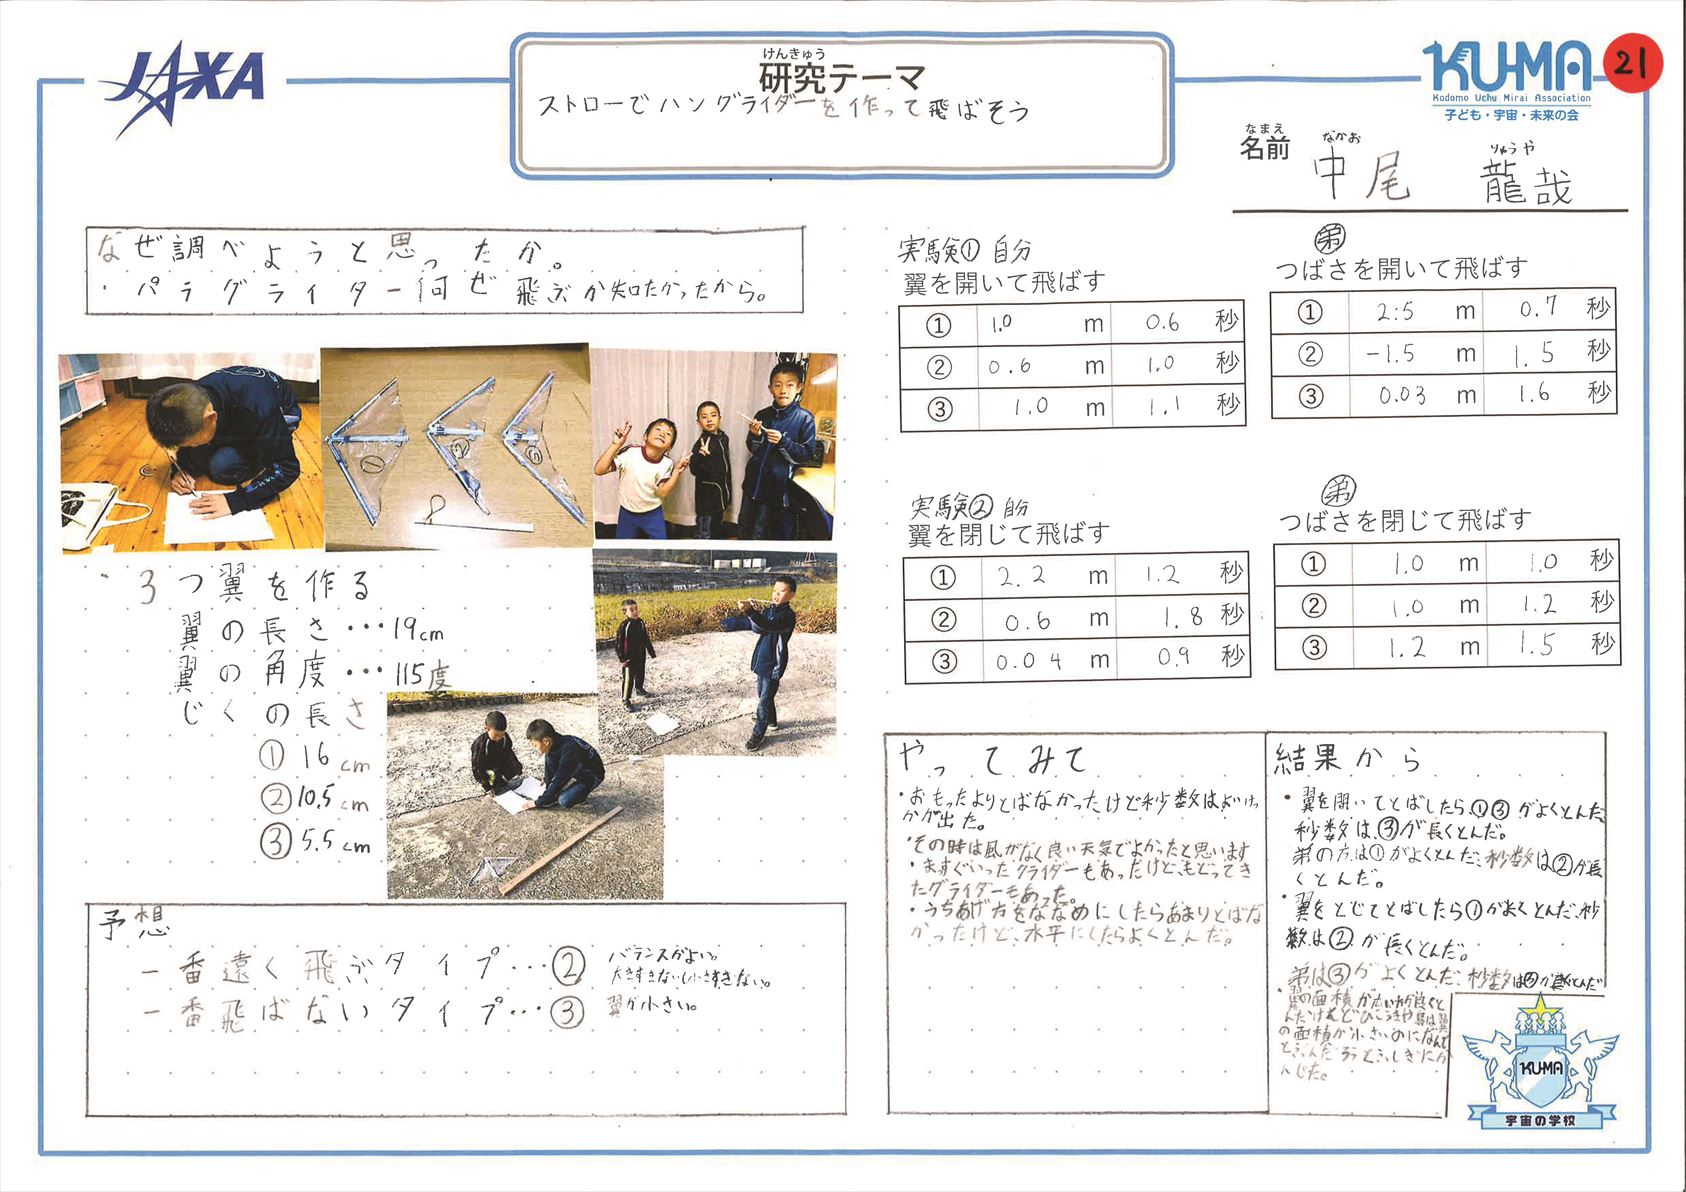 JAXA
けんきゅう
研究テーマ
ストローでハングライダーを作って飛ばそう
KU-MA
Kodomo Uchu Mirai Association
子ども・宇宙・未来の会
21
なまえ
名前
なかお りゅうや
中尾 龍哉
なぜ調べようと思ったか。
・パラグライター何ぜ飛ぶか知たかったから。
① ② ③
3つ翼を作る
翼の長さ・・・19cm
翼の角度・・・115度
じくの長さ
①16cm
②10.5cm
③5.5cm
予想
一番遠く飛ぶタイプ・・・②
バランスがよい。
大きすぎない小さすぎない。
一番飛ばないタイプ・・・③ 翼が小さい。
実験① 自分
翼を開いて飛ばす
① 1.0 m 0.6 秒
② 0.6 m 1.0 秒
③ 1.0 m 1.1 秒
弟
つばさを開いて飛ばす
① 2:5 m 0.7 秒
② -1.5 m 1.5 秒
③ 0.03 m 1.6 秒
実験② 自分
翼を閉じて飛ばす
① 2.2 m 1.2 秒
② 0.6 m 1.8 秒
③ 0.04 m 0.9 秒
弟
つばさを閉じて飛ばす
① 1.0 m 1.0 秒
② 1.0 m 1.2 秒
③ 1.2 m 1.5 秒
やってみて
・おもったよりとばなかったけど秒数はよいけっ
かが出た。
・その時は風がなく良い天気でよかったと思います
・ますぐいったグライダーもあったけど、もどってき
たグライダーもあった。
・うちあげ方をななめにしたらあまりとばな
かったけど、水平にしたらよくとんだ。
結果から
・翼を開いてとばしたら①③がよくとんだ、
秒数は③が長くとんだ。
弟の方は①がよくとんだ、秒数は②が長
くとんだ。
・翼をとじてとばしたら①がよくとんだ、秒
数は②が長くとんだ。
弟は③がよくとんだ、秒数は③が長くとんだ
・翼の面積が大きい方が良くと
んだけれどひこうきや鳥は翼
の面積が小さいのになんで
とぶんだろうとふしぎにか
んじた。
KU-MA
宇宙の学校